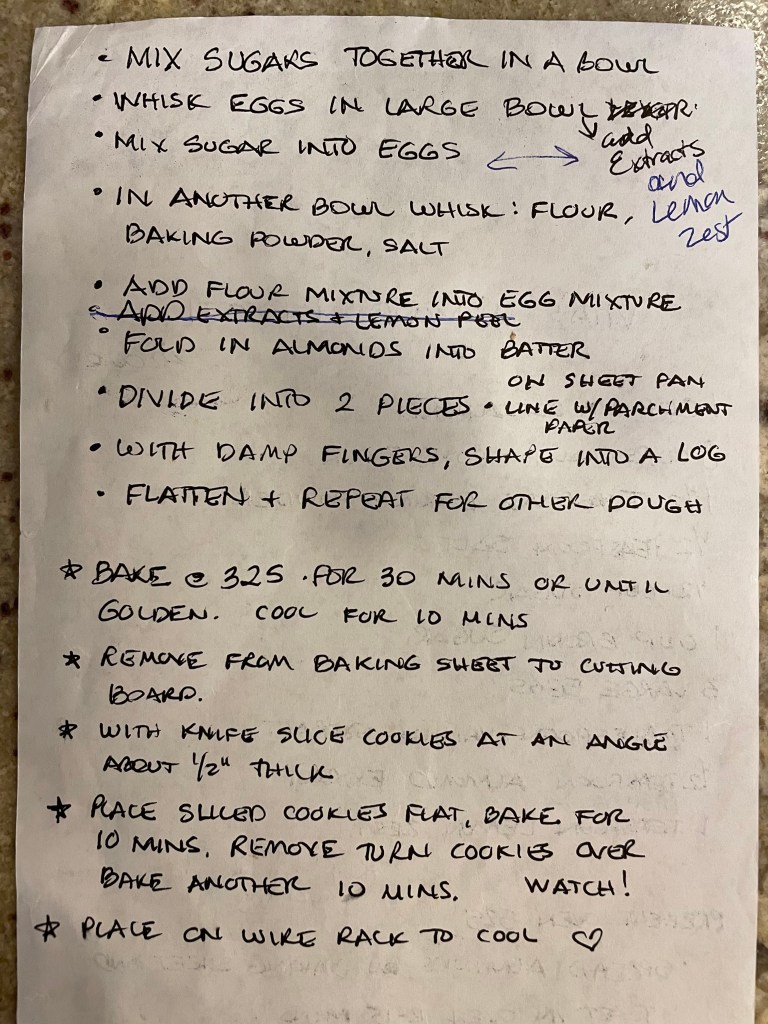 • MIX SUGARS TOGETHER IN A BOWL
• WHISK EGGS IN LARGE BOWL
• MIX SUGAR INTO EGGS
add
Extracts
and
Lemon
zest
• IN ANOTHER BOWL WHISK: FLOUR,
BAKING POWDER, SALT
• ADD FLOUR MIXTURE INTO EGG MIXTURE
• ADD EXTRACTS + LEMON PEEL
• FOLD IN ALMONDS INTO BATTER
• DIVIDE INTO 2 PIECES
ON SHEET PAN
• LINE W/PARCHMENT
PAPER
• WITH DAMP FINGERS, SHAPE INTO A LOG
• FLATTEN + REPEAT FOR OTHER DOUGH
★ BAKE @ 325 . FOR 30 MINS OR UNTIL
GOLDEN. COOL FOR 10 MINS
★ REMOVE FROM BAKING SHEET TO CUTTING
BOARD.
★ WITH KNIFE SLICE COOKIES AT AN ANGLE
ABOUT 1/2" THICK
★ PLACE SLICED COOKIES FLAT, BAKE FOR
10 MINS. REMOVE TURN COOKIES OVER
BAKE ANOTHER 10 MINS. WATCH!
★ PLACE ON WIRE RACK TO COOL ♡